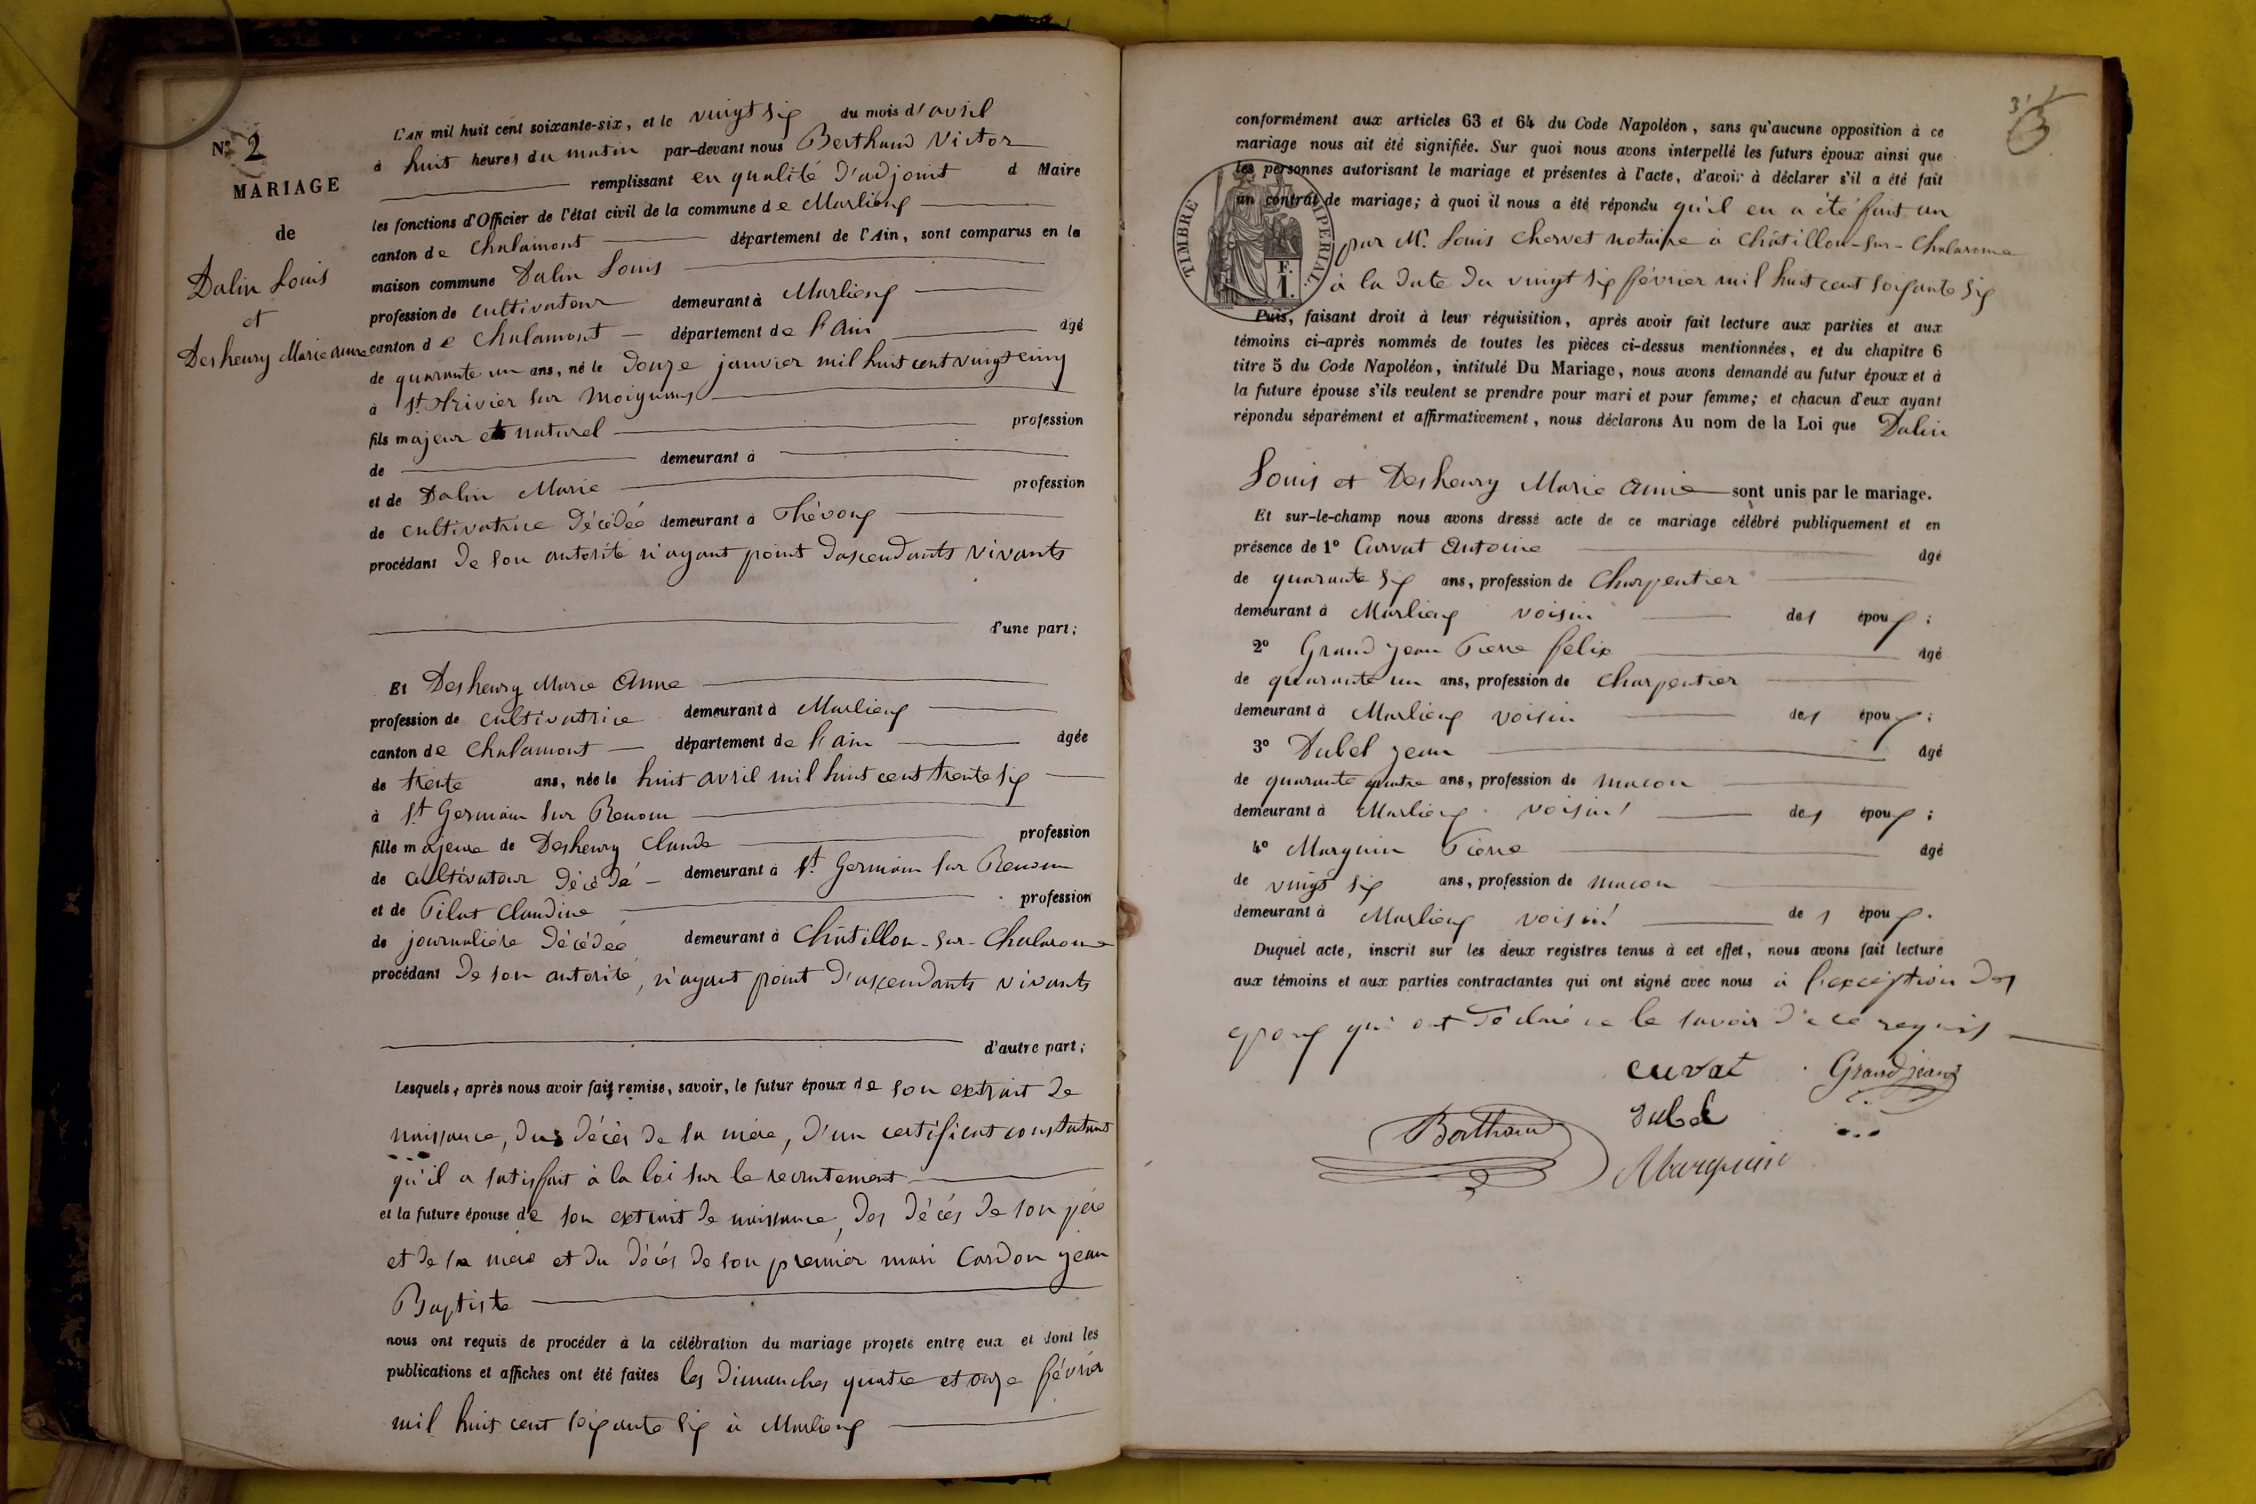 N° 2
MARIAGE
de
Dalin Louis
et
Desheury Marie Anne
L'AN mil huit cent soixante-six, et le vingt six du mois d'avril
à huit heures du matin par-devant nous Berthaud Victor
remplissant en qualité d'adjoint d Maire
les fonctions d'Officier de l'état civil de la commune de Marlieux
canton de Chalamont département de l'Ain, sont comparus en la
maison commune Dalin Louis
profession de cultivateur demeurant à Marlieux
canton de Chalamont département de l'Ain âgé
de quarante un ans, né le douze janvier mil huit cent vingt cinq
à St Trivier sur Moignans
fils majeur et naturel profession
de demeurant à
et de Dalin Marie profession
de cultivatrice décédée demeurant à Thévoux
procédant de son autorité n'ayant point d'ascendants vivants
d'une part;
Et Desheury Marie Anne
profession de cultivatrice demeurant à Marlieux
canton de Chalamont département de l'ain âgée
de trente ans, née le huit avril mil huit cent trente six
à St Germain sur Renom
fille majeure de Desheury Claude profession
de cultivateur décédé demeurant à St Germain sur Renom
et de Pilat Claudine profession
de journalière décédée demeurant à Châtillon-sur-Chalaronne
procédant de son autorité, n'ayant point d'ascendants vivants
d'autre part;
Lesquels, après nous avoir fait remise, savoir, le futur époux de son extrait de
naissance, du décès de sa mère, d'un certificat constatant
qu'il a satisfait à la loi sur le recrutement
et la future épouse de son extrait de naissance, des décés de son père
et de sa mère et du décés de son premier mari Cardon Jean
Baptiste
nous ont requis de procéder à la célébration du mariage projeté entre eux et dont les
publications et affiches ont été faites les dimanches quatre et onze février
mil huit cent soixante six à Marlieux
3
conformément aux articles 63 et 64 du Code Napoléon, sans qu'aucune opposition à ce
mariage nous ait été signifiée. Sur quoi nous avons interpellé les futurs époux ainsi que
les personnes autorisant le mariage et présentes à l'acte, d'avoir à déclarer s'il a été fait
un contrat de mariage; à quoi il nous a été répondu qu'il en a été fait un
par Mr Louis Chervet notaire à Châtillon-sur-Chalaronne
à la date du vingt six février mil huit cent soixante six
TIMBRE IMPERIAL
F. I.
Puis, faisant droit à leur réquisition, après avoir fait lecture aux parties et aux
témoins ci-après nommés de toutes les pièces ci-dessus mentionnées, et du chapitre 6
titre 5 du Code Napoléon, intitulé Du Mariage, nous avons demandé au futur époux et à
la future épouse s'ils veulent se prendre pour mari et pour femme; et chacun d'eux ayant
répondu séparément et affirmativement, nous déclarons Au nom de la Loi que Dalin
Louis et Desheury Marie Anne sont unis par le mariage.
Et sur-le-champ nous avons dressé acte de ce mariage célébré publiquement et en
présence de 1° Curvat Antoine âgé
de quarante six ans, profession de Charpentier
demeurant à Marlieux voisin des époux;
2° Grand Jean Pierre felix âgé
de quarante un ans, profession de Charpentier
demeurant à Marlieux voisin des époux;
3° Dubel Jean âgé
de quarante quatre ans, profession de macon
demeurant à Marlieux voisin des époux;
4° Marguin Pierre âgé
de vingt six ans, profession de macon
demeurant à Marlieux voisin des époux.
Duquel acte, inscrit sur les deux registres tenus à cet effet, nous avons fait lecture
aux témoins et aux parties contractantes qui ont signé avec nous à l'exception des
époux qui ont déclaré ne le savoir de ce requis
Cuvat Grandjean
Berthaud Dubel
Marguin